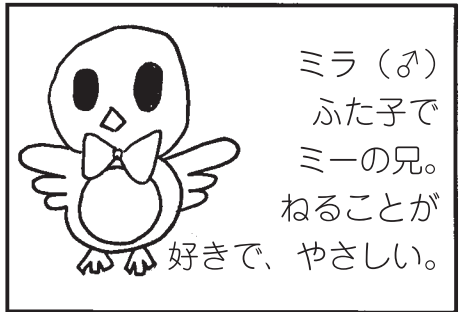 ミラ（♂）
ふた子で
ミーの兄。
ねることが
好きで、やさしい。